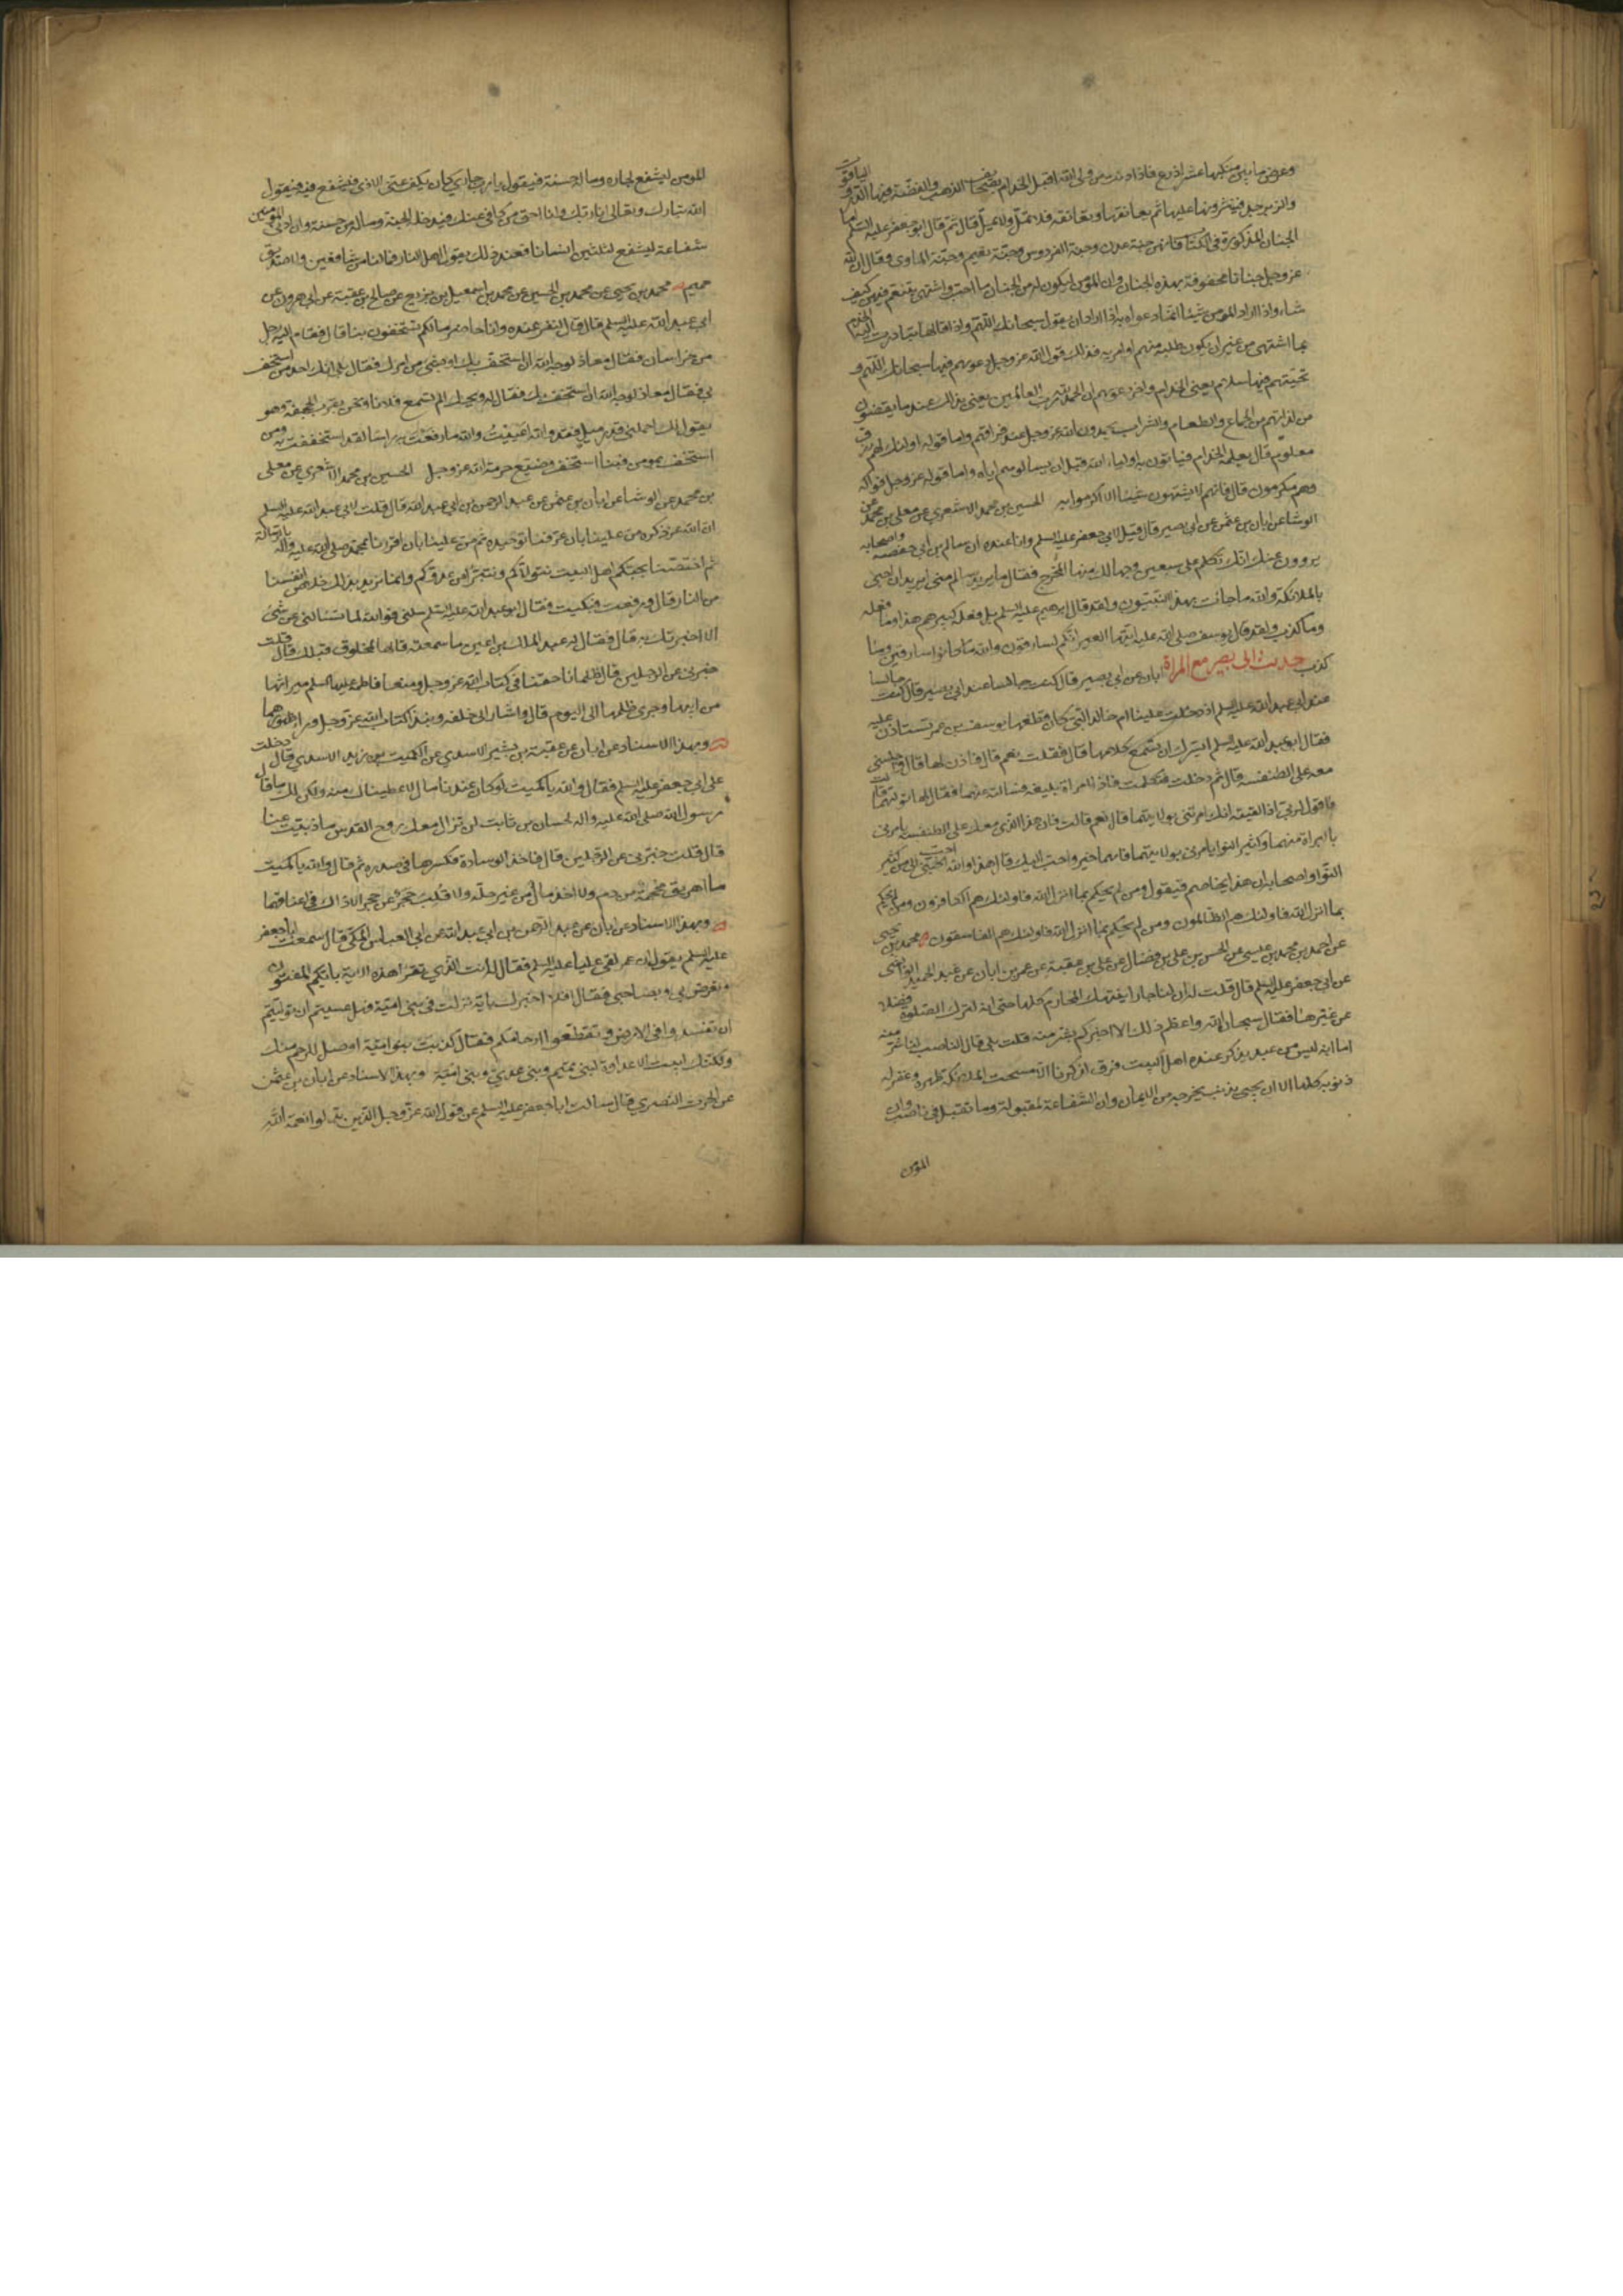 وعرض ما بين منكبيها عشر اذرع فاذا دنت من ولي الله اقبل الخدام بصحائف الذهب والفضة فيها الدر والياقوت
والزبرجد فينثرونها عليها ثم يعانقها وتعانقه فلا تمل ولا يمل قال ثم قال ابو جعفر عليه السلم اما
الجنان المذكورة في الكتاب فانهن جنة عدن وجنة الفردوس وجنة نعيم وجنة الماوى وقال ان لله
عز وجل جنانا محفوفة بهذه الجنان وان المؤمن ليكون له من الجنان ما احب واشتهى يتنعم فيهن كيف
شاء واذا اراد المؤمن شيئا انما دعواه به اذا اراد ان يقول سبحانك اللهم واذا قالها تبادرت اليه الخدم
بما اشتهى من غير ان يكون طلبه منهم او امر به وذلك قول الله عز وجل دعويهم فيها سبحانك اللهم و
تحيتهم فيها سلام يعني الخدام واخر دعويهم ان الحمد لله رب العالمين يعني بذلك عند ما يقضون
من لذاتهم من الجماع والطعام والشراب يحمدون الله عز وجل عند فراغتهم واما قوله اولئك لهم رزق
معلوم قال يعلمه الخدام فياتون به اولياء الله قبل ان يسالوهم اياه واما قوله عز وجل فواكه
وهم مكرمون قال فانهم لا يشتهون شيئا الا اكرموا به الحسين بن محمد الاشعري عن معلى بن محمد عن
الوشا عن ابان بن عثمن عن ابي بصير قال قيل لابي جعفر عليه السلم وانا عنده ان سالم بن ابي حفصة واصحابه
يروون عنك انك تكلم على سبعين وجها لك منها المخرج فقال ما يريد سالم مني ايريد ان اجيئ
بالملائكة والله ما جائت بهذا النبيون ولقد قال ابرهيم عليه السلم بل فعله كبيرهم هذا وما فعله
وما كذب ولقد قال يوسف صلى الله عليه ايتها العير انكم لسارقون والله ما كانوا سارقين وما
كذب حديث ابي بصير مع المراة ابان عن ابي بصير قال كنت جالسا عند ابي بصير قال كنت جالسا
عند ابي عبد الله عليه السلم اذ دخلت علينا ام خالد التي كان قطعها يوسف بن عمر تستاذن عليه
فقال ابو عبد الله عليه السلم ايسرك ان تسمع كلامها قال فقلت نعم قال فاذن لها قال واجلسني
معه على الطنفسة قال ثم دخلت فتكلمت فاذا امراة بليغة فسالته عنهما فقال لها توليهما قالت
فاقول لربي اذا لقيته انك امرتني بولايتهما قال نعم قالت فان هذا الذي معك على الطنفسة يامرني
بالبراة منهما وكثير النوا يامرني بولايتهما فايهما خير واحب اليك قال هذا والله احب الي من كثير
النوا واصحابه ان هذا يخاصم فيقول ومن لم يحكم بما انزل الله فاولئك هم الكافرون ومن لم يحكم
بما انزل الله فاولئك هم الظالمون ومن لم يحكم بما انزل الله فاولئك هم الفاسقون محمد بن يحيى
عن احمد بن محمد بن عيسى عن الحسن بن علي بن فضال عن علي بن عقبة عن عمر بن ابان عن عبد الحميد الوابشي
عن ابي جعفر عليه السلم قال قلت له ان لنا جارا ينتهك المحارم كلها حتى انه ليترك الصلوة فضلا
عن غيرها فقال سبحان الله واعظم ذلك الا اخبركم بشر منه قلت بلى قال الناصب لنا شر منه
اما انه ليس من عبد يذكر عنده اهل البيت فرق لذكرنا الا مسحت الملائكة ظهره وغفر له
ذنوبه كلها الا ان يجيئ بذنب يخرجه من الايمان وان الشفاعة لمقبولة وما تقبل في ناصب وان
المؤمن
المؤمن ليشفع لجاره وماله حسنة فيقول يا رب جاري كان يكف عني الاذى فيشفع فيه فيقول
الله تبارك وتعالى انا ربك وانا احق من كافى عنك فيدخله الجنة وماله من حسنة وان ادنى المؤمنين
شفاعة ليشفع لثلثين انسانا فعند ذلك يقول اهل النار فما لنا من شافعين ولا صديق
حميم محمد بن يحيى عن محمد بن الحسين عن محمد بن اسمعيل بن بزيع عن صالح بن عقبة عن ابي هرون عن
ابي عبد الله عليه السلم قال قال لنفر عنده وانا حاضر ما لكم تستخفون بنا قال فقام اليه رجل
من خراسان فقال معاذ لوجه الله ان نستخف بك او بشئ من امرك فقال بلى انك احد من استخف
بي فقال معاذ لوجه الله ان استخف بك فقال له ويحك الم تسمع فلانا ونحن بقرب الجحفة وهو
يقول لك احملني قدر ميل فقد والله اعييت والله ما رفعت به راسا لقد استخففت به ومن
استخف بمومن فبنا استخف وضيع حرمة الله عز وجل الحسين بن محمد الاشعري عن معلى
بن محمد عن الوشا عن ابان بن عثمن عن عبد الرحمن بن ابي عبد الله قال قلت لابي عبد الله عليه السلم
ان الله عز ذكره من علينا بان عرفنا توحيده ثم من علينا بان اقررنا بمحمد صلى الله عليه وآله بالرسالة
ثم اختصنا بحبكم اهل البيت نتولاكم ونتبرأ من عدوكم وانما نريد بذلك خلاص انفسنا
من النار قال ورققت فبكيت فقال ابو عبد الله عليه السلم سلني فوالله لما تسئلني عن شئ
الا اخبرتك به قال فقال له عبد الملك بن اعين ما سمعته قالها لمخلوق قبلك قال قلت
خبرني عن الرجلين قال ظلمانا حقنا في كتاب الله عز وجل ومنعا فاطمة عليها السلم ميراثها
من ابيها وجرى ظلمها الى اليوم قال واشار الى خلفه ونبذا كتاب الله عز وجل وراء ظهورهما
وبهذا الاسناد عن ابان عن عقبة بن بشير الاسدي عن الكميت بن زيد الاسدي قال دخلت
على ابي جعفر عليه السلم فقال والله يا كميت لو كان عندنا مال لاعطيناك منه ولكن لك ما قال
رسول الله صلى الله عليه وآله لحسان بن ثابت لن تزال معك روح القدس ما ذببت عنا
قال قلت خبرني عن الرجلين قال فاخذ الوسادة فكسرها في صدره ثم قال والله يا كميت
ما اهريق محجمة من دم ولا اخذ مال من غير حله ولا قلب حجر عن حجر الا ذاك في اعناقهما
وبهذا الاسناد عن ابان عن عبد الرحمن بن ابي عبد الله عن ابي العباس المكي قال سمعت ابا جعفر
عليه السلم يقول ان عمر لقي عليا عليه السلم فقال له انت الذي تقرا هذه الاية بايكم المفتون
وتعرض بي وبصاحبي فقال افلا اخبرك باية نزلت في بني امية فهل عسيتم ان توليتم
ان تفسدوا في الارض وتقطعوا ارحامكم فقال كذبت بنو امية اوصل للرحم منك
ولكنك ابيت الا عداوة لبني تميم وبني عدي وبني امية وبهذا الاسناد عن ابان بن عثمن
عن الحرث النصري قال سالت ابا جعفر عليه السلم عن قول الله عز وجل الذين بدلوا نعمة الله